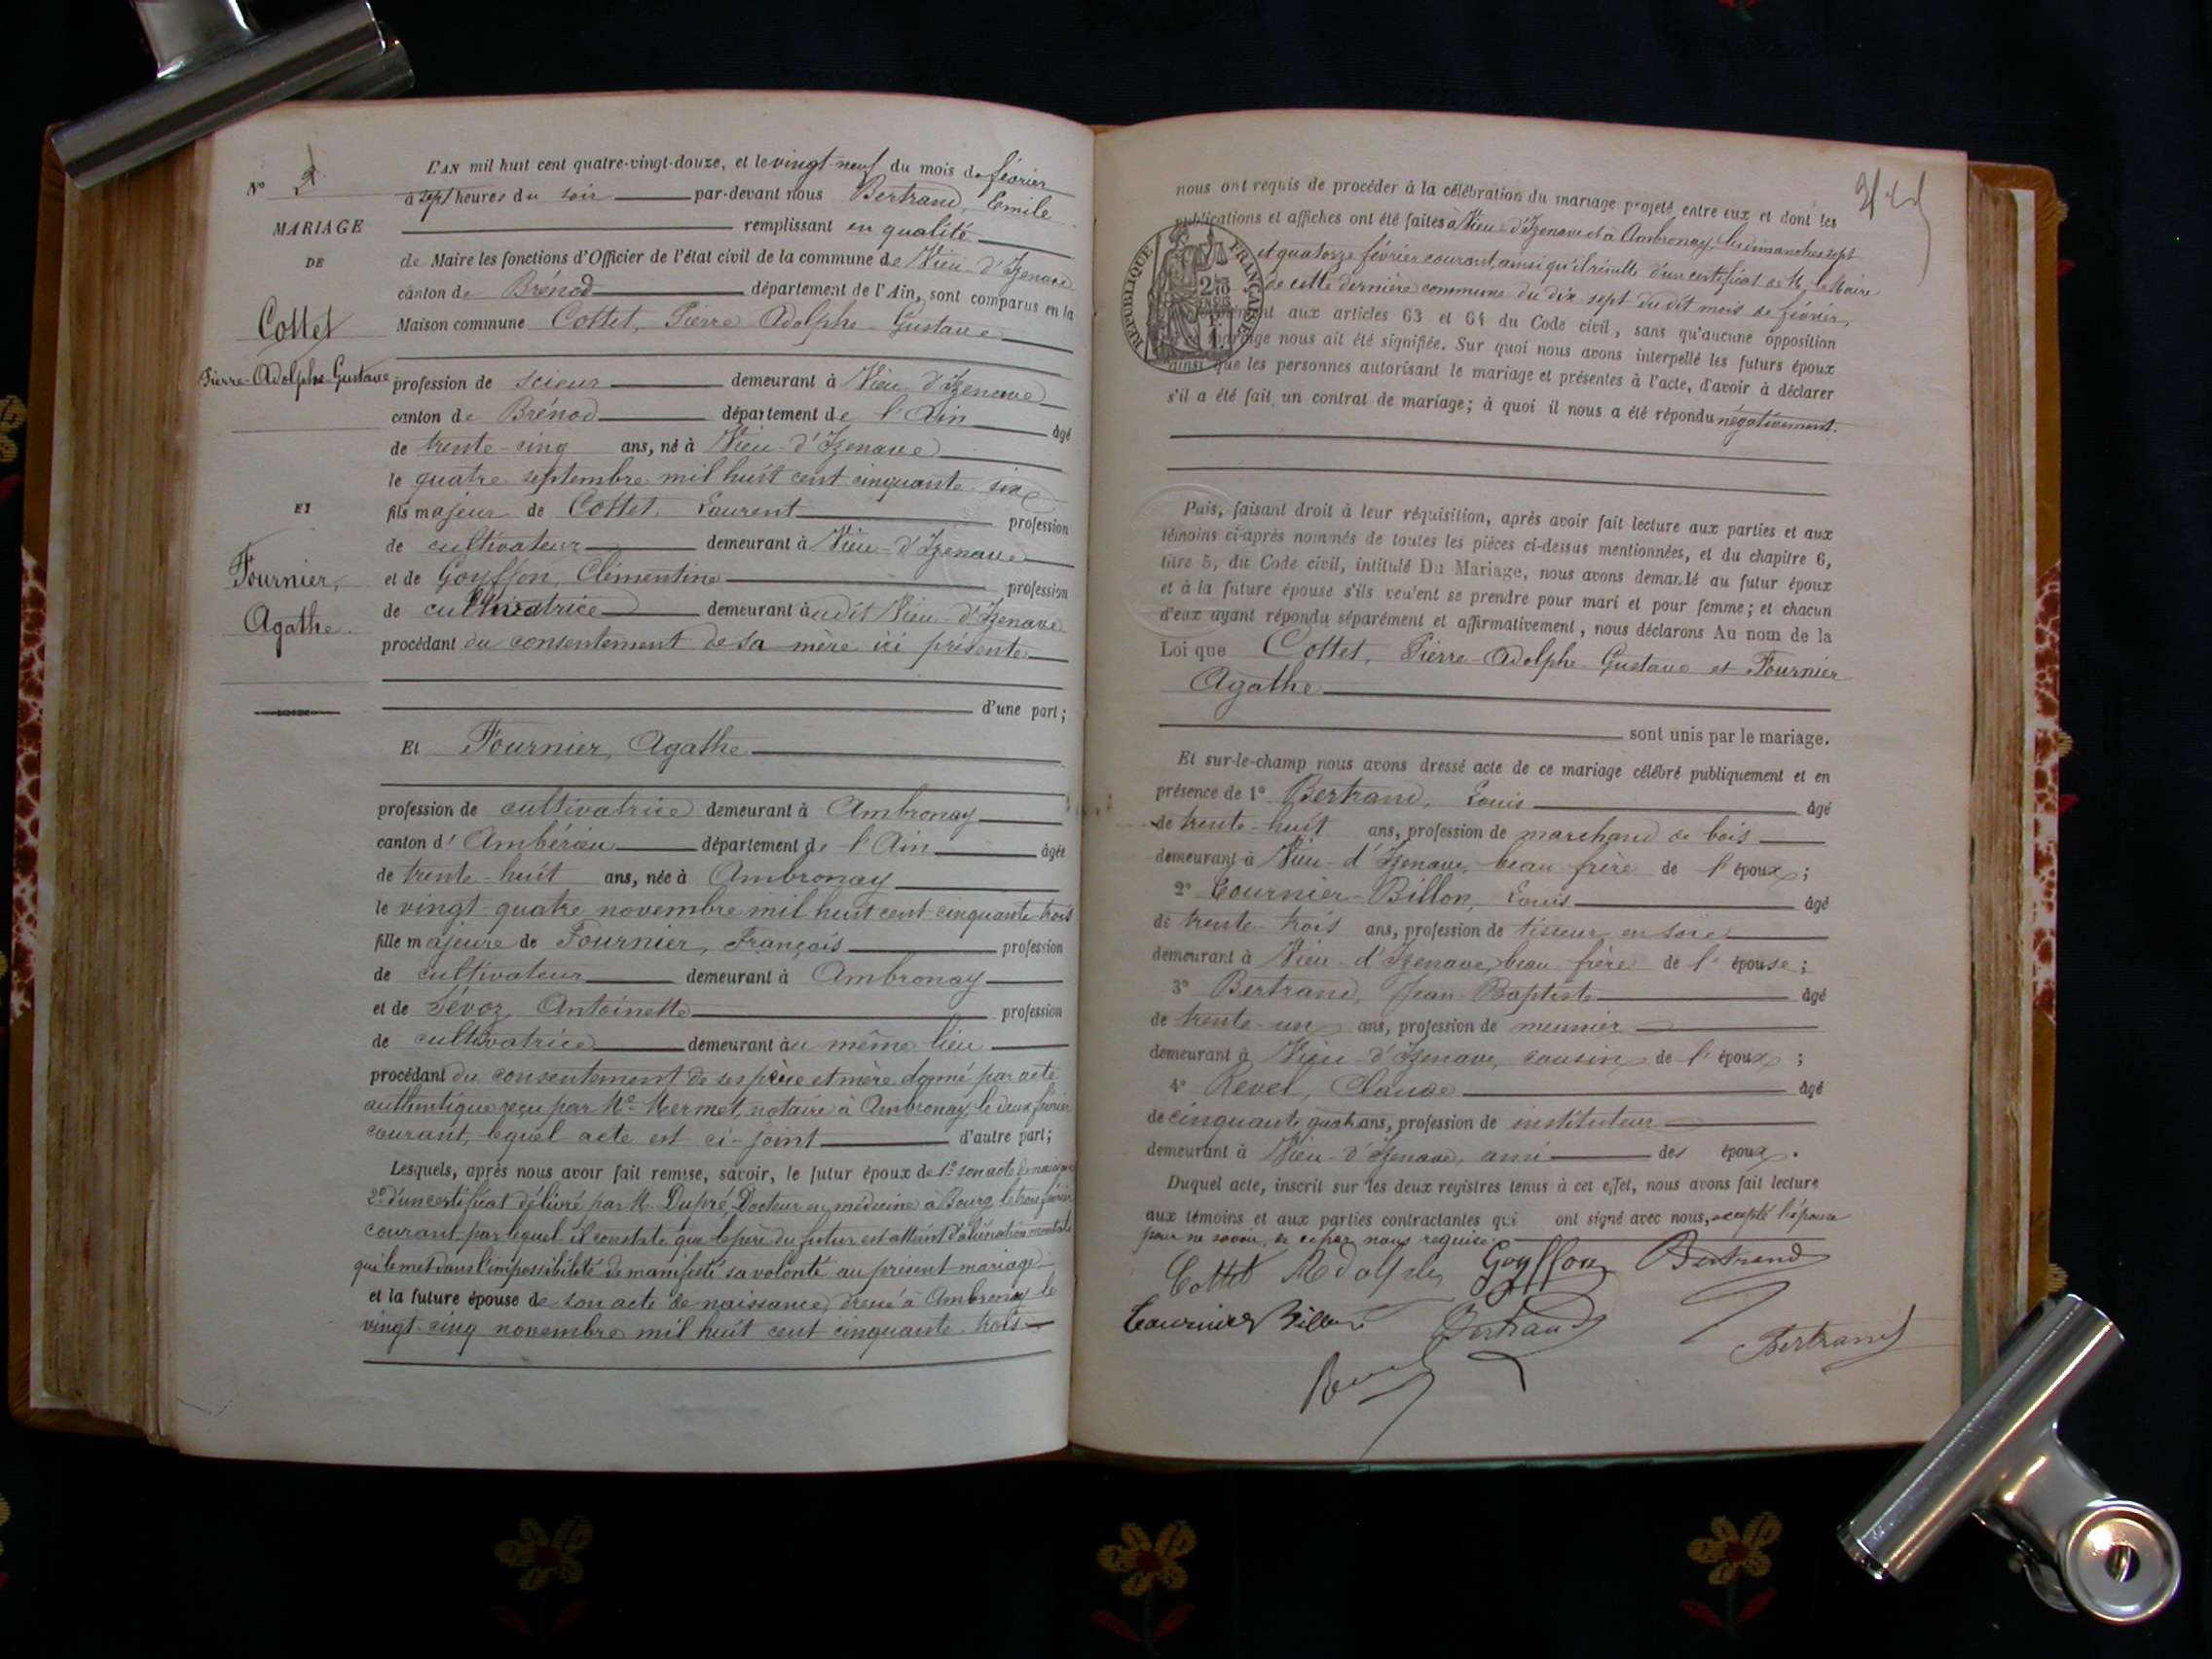 L'AN mil huit cent quatre-vingt-douze, et le vingt-neuf du mois de février
N° 2
à sept heures du soir par-devant nous Bertrand, Emile
remplissant en qualité
MARIAGE
DE
de Maire les fonctions d'Officier de l'état civil de la commune de Vieu-d'Izenave
canton de Brénod département de l'Ain, sont comparus en la
Maison commune Cottet, Pierre Adolphe Gustave
Cottet
Pierre-Adolphe-Gustave
profession de scieur demeurant à Vieu-d'Izenave
canton de Brénod département de l'Ain âgé
de trente-cinq ans, né à Vieu-d'Izenave
le quatre septembre mil huit cent cinquante-six
ET
fils majeur de Cottet, Laurent profession
de cultivateur demeurant à Vieu-d'Izenave
Fournier,
Agathe.
et de Goyffon, Clémentine profession
de cultivatrice demeurant audit Vieu-d'Izenave
procédant du consentement de sa mère ici présente
d'une part;
Et Fournier, Agathe
profession de cultivatrice demeurant à Ambronay
canton d'Ambérieu département de l'Ain âgée
de trente-huit ans, née à Ambronay
le vingt-quatre novembre mil huit cent cinquante-trois
fille majeure de Fournier, François profession
de cultivateur demeurant à Ambronay
et de Sévoz, Antoinette profession
de cultivatrice demeurant au même lieu
procédant du consentement de ses père et mère donné par acte
authentique reçu par Me Mermet, notaire à Ambronay, le deux février
courant, lequel acte est ci-joint d'autre part;
Lesquels, après nous avoir fait remise, savoir, le futur époux de 1° son acte de naissance
2° d'un certificat délivré par M. Dupré, Docteur en médecine à Bourg, le février
courant par lequel il constate que le père du futur est atteint d'aliénation mentale
qui le met dans l'impossibilité de manifesté sa volonté au présent mariage.
et la future épouse de son acte de naissance, dressé à Ambronay le
vingt-cinq novembre mil huit cent cinquante-trois
nous ont requis de procéder à la célébration du mariage projeté entre eux et dont les
publications et affiches ont été faites à Vieu-d'Izenave et à Ambronay, les dimanches sept
et quatorze février courant, ainsi qu'il résulte d'un certificat de M. le Maire
de cette dernière commune du dix sept du dit mois de février,
RÉPUBLIQUE FRANÇAISE
2/10 EN SUS
1 F.
aux articles 63 et 64 du Code civil, sans qu'aucune opposition
mariage nous ait été signifiée. Sur quoi nous avons interpellé les futurs époux
ainsi que les personnes autorisant le mariage et présentes à l'acte, d'avoir à déclarer
s'il a été fait un contrat de mariage; à quoi il nous a été répondu négativement.
Puis, faisant droit à leur réquisition, après avoir fait lecture aux parties et aux
témoins ci-après nommés de toutes les pièces ci-dessus mentionnées, et du chapitre 6,
titre 5, du Code civil, intitulé Du Mariage, nous avons demandé au futur époux
et à la future épouse s'ils veulent se prendre pour mari et pour femme; et chacun
d'eux ayant répondu séparément et affirmativement, nous déclarons Au nom de la
Loi que Cottet, Pierre-Adolphe-Gustave et Fournier
Agathe
sont unis par le mariage.
Et sur-le-champ nous avons dressé acte de ce mariage célébré publiquement et en
présence de 1° Bertrand, Louis âgé
de trente-huit ans, profession de marchand de bois
demeurant à Vieu-d'Izenave, beau frère de l'époux;
2° Tournier-Billon, Louis âgé
de trente-trois ans, profession de tisseur en soie
demeurant à Vieu-d'Izenave, beau frère de l'épouse;
3° Bertrand, Jean-Baptiste âgé
de trente-un ans, profession de meunier
demeurant à Vieu-d'Izenave, cousin de l'époux;
4° Revel, Claude âgé
de cinquante quatre ans, profession de instituteur
demeurant à Vieu-d'Izenave, ami des époux.
Duquel acte, inscrit sur les deux registres tenus à cet effet, nous avons fait lecture
aux témoins et aux parties contractantes qui ont signé avec nous, excepté l'épouse
pour ne savoir, de ce par nous requise.
Cottet Adolphe Goyffon Bertrand
Tournier Billon Bertrand
Bertrand
Revel